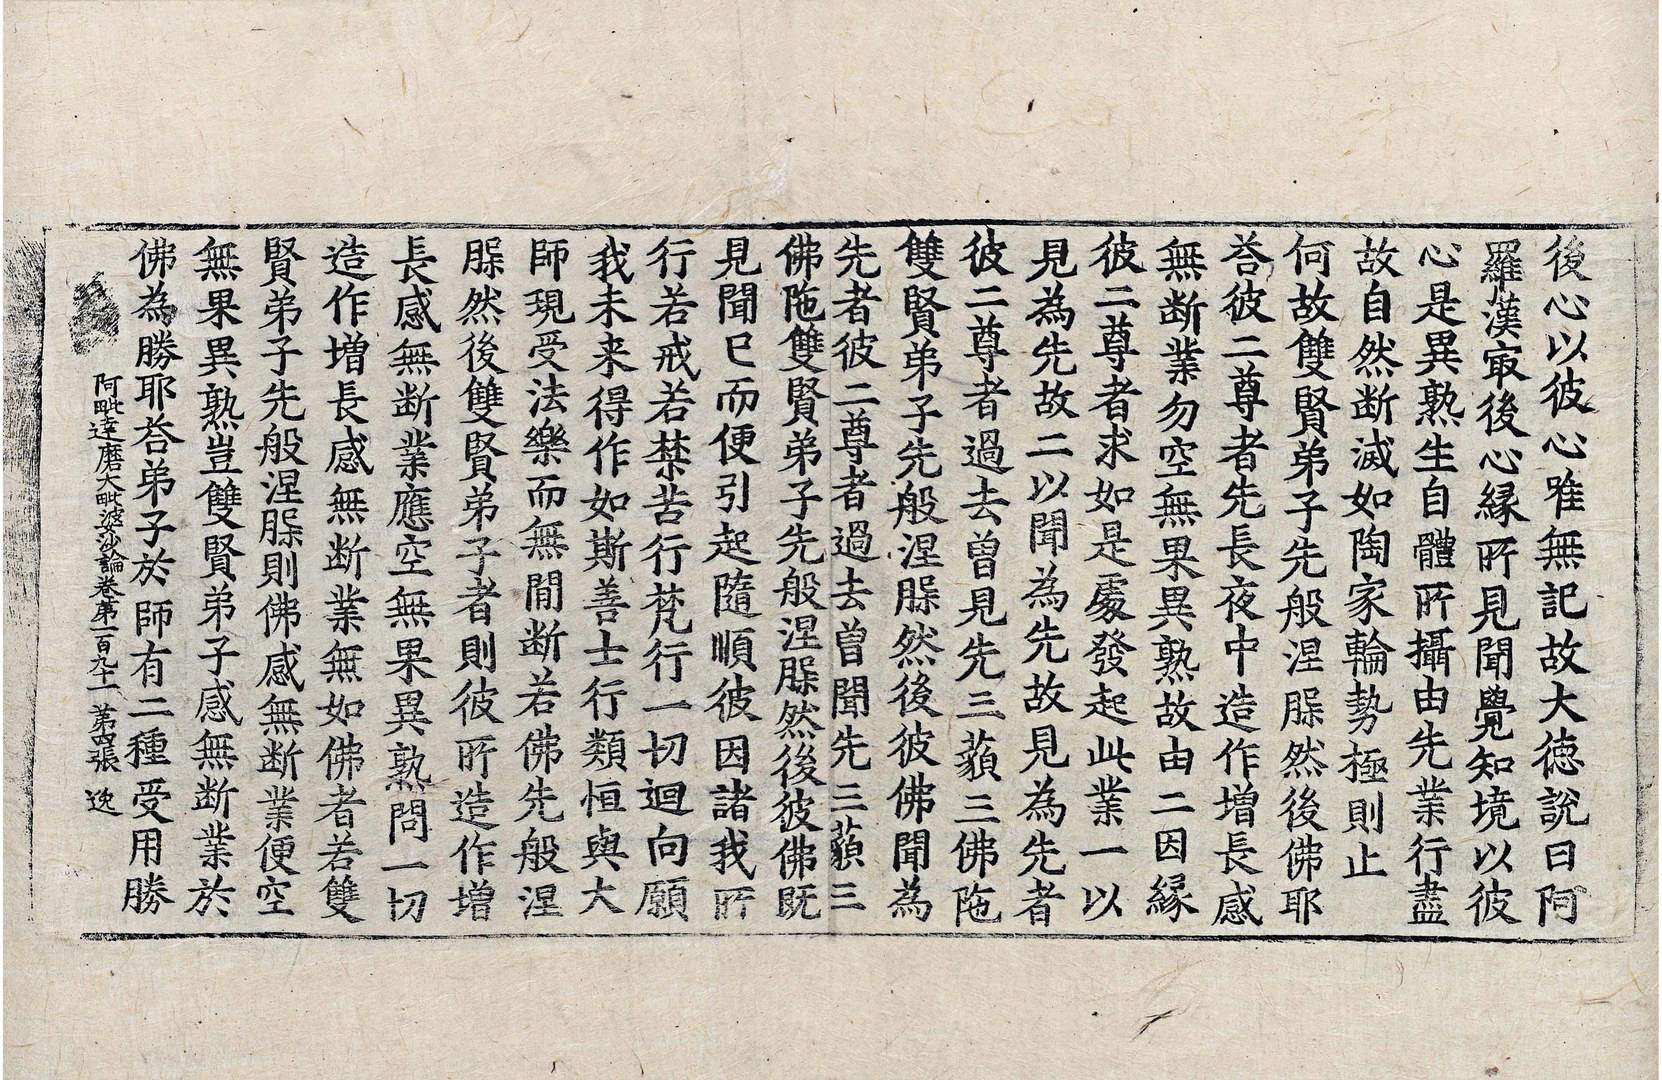 後心以彼心唯無記故大德說曰阿
羅漢㝡後心緣所見聞覺知境以彼
心是異熟生自體所攝由先業行盡
故自然断滅如陶家輪勢極則止
何故雙賢弟子先般涅槃然後佛耶
荅彼二尊者先長夜中造作增長感
無断業勿空無果異熟故由二因緣
彼二尊者求如是處發起此業一以
見為先故二以聞為先故見為先者
彼二尊者過去曾見先三藐三佛陁
雙賢弟子先般涅槃然後彼佛聞為
先者彼二尊者過去曾聞先三藐三
佛陁雙賢弟子先般涅槃然後彼佛既
見聞已而便引起隨順彼因諸我所
行若戒若禁苦行梵行一切迴向願
我未来得作如斯善士行類恒與大
師現受法樂而無間断若佛先般涅
槃然後雙賢弟子者則彼所造作增
長感無断業應空無果異熟問一切
造作增長感無断業無如佛者若雙
賢弟子先般涅槃則佛感無断業便空
無果異熟豈雙賢弟子感無断業於
佛為勝耶荅弟子於師有二種受用勝
阿毗達磨大毗婆沙論卷第一百九十一 第四張 逸